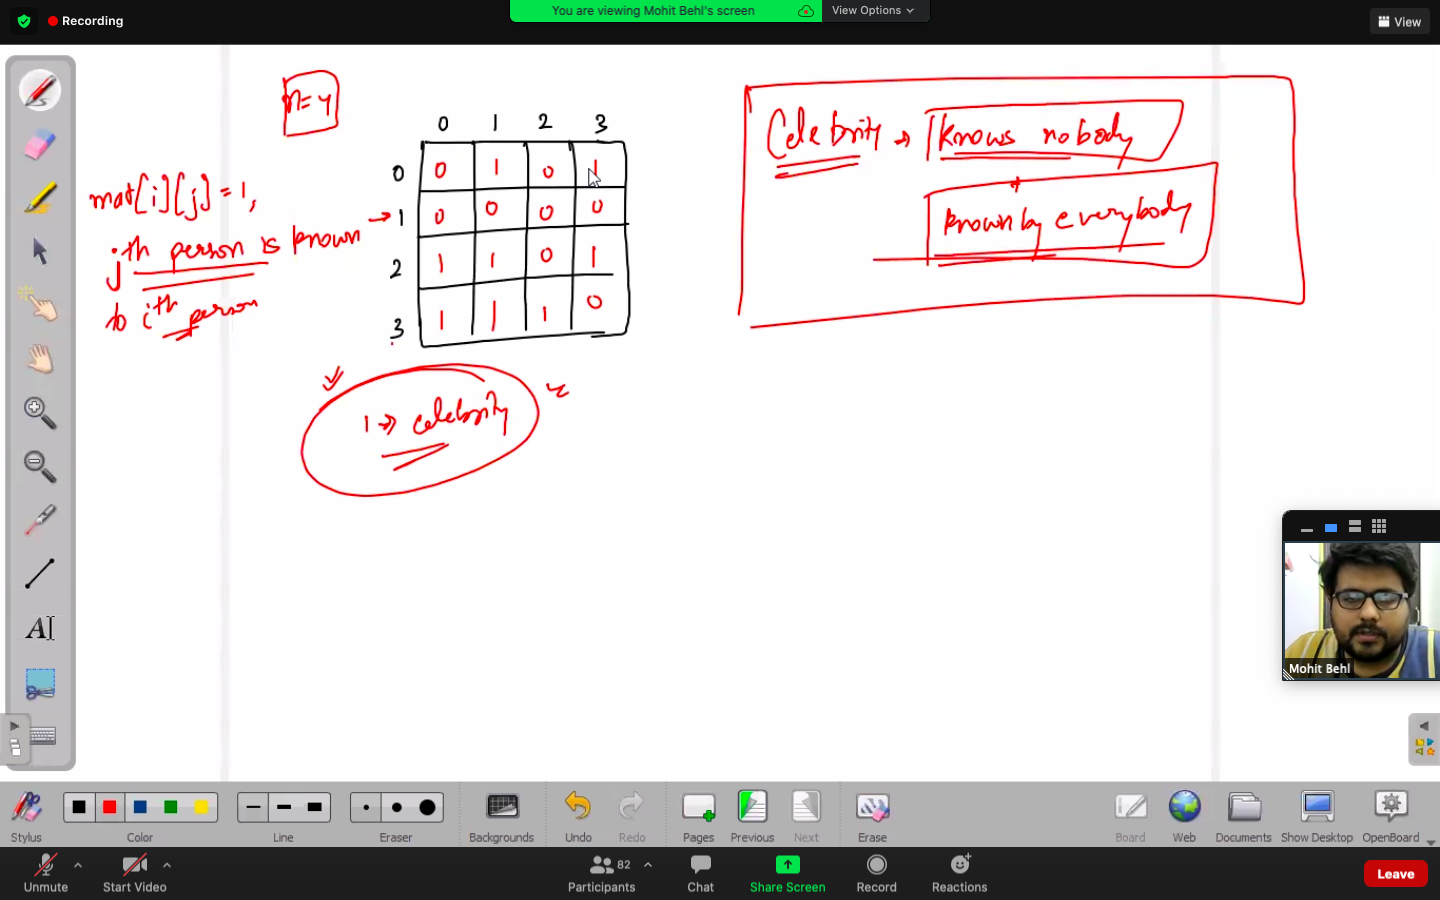 Recording
You are viewing Mohit Behl's screen
View Options
View
n=4
0 1 2 3
0 0 1 0 1
1 0 0 0 0
2 1 1 0 1
3 1 1 1 0
mat[i][j]=1,
jth person is known
to ith person
1 → celebrity
Celebrity → knows nobody
+
known by everybody
Mohit Behl
A
Stylus
Color
Line
Eraser
Backgrounds
Undo
Redo
Pages
Previous
Next
Erase
Board
Web
Documents
Show Desktop
OpenBoard
Unmute
Start Video
82
Participants
Chat
Share Screen
Record
Reactions
Leave